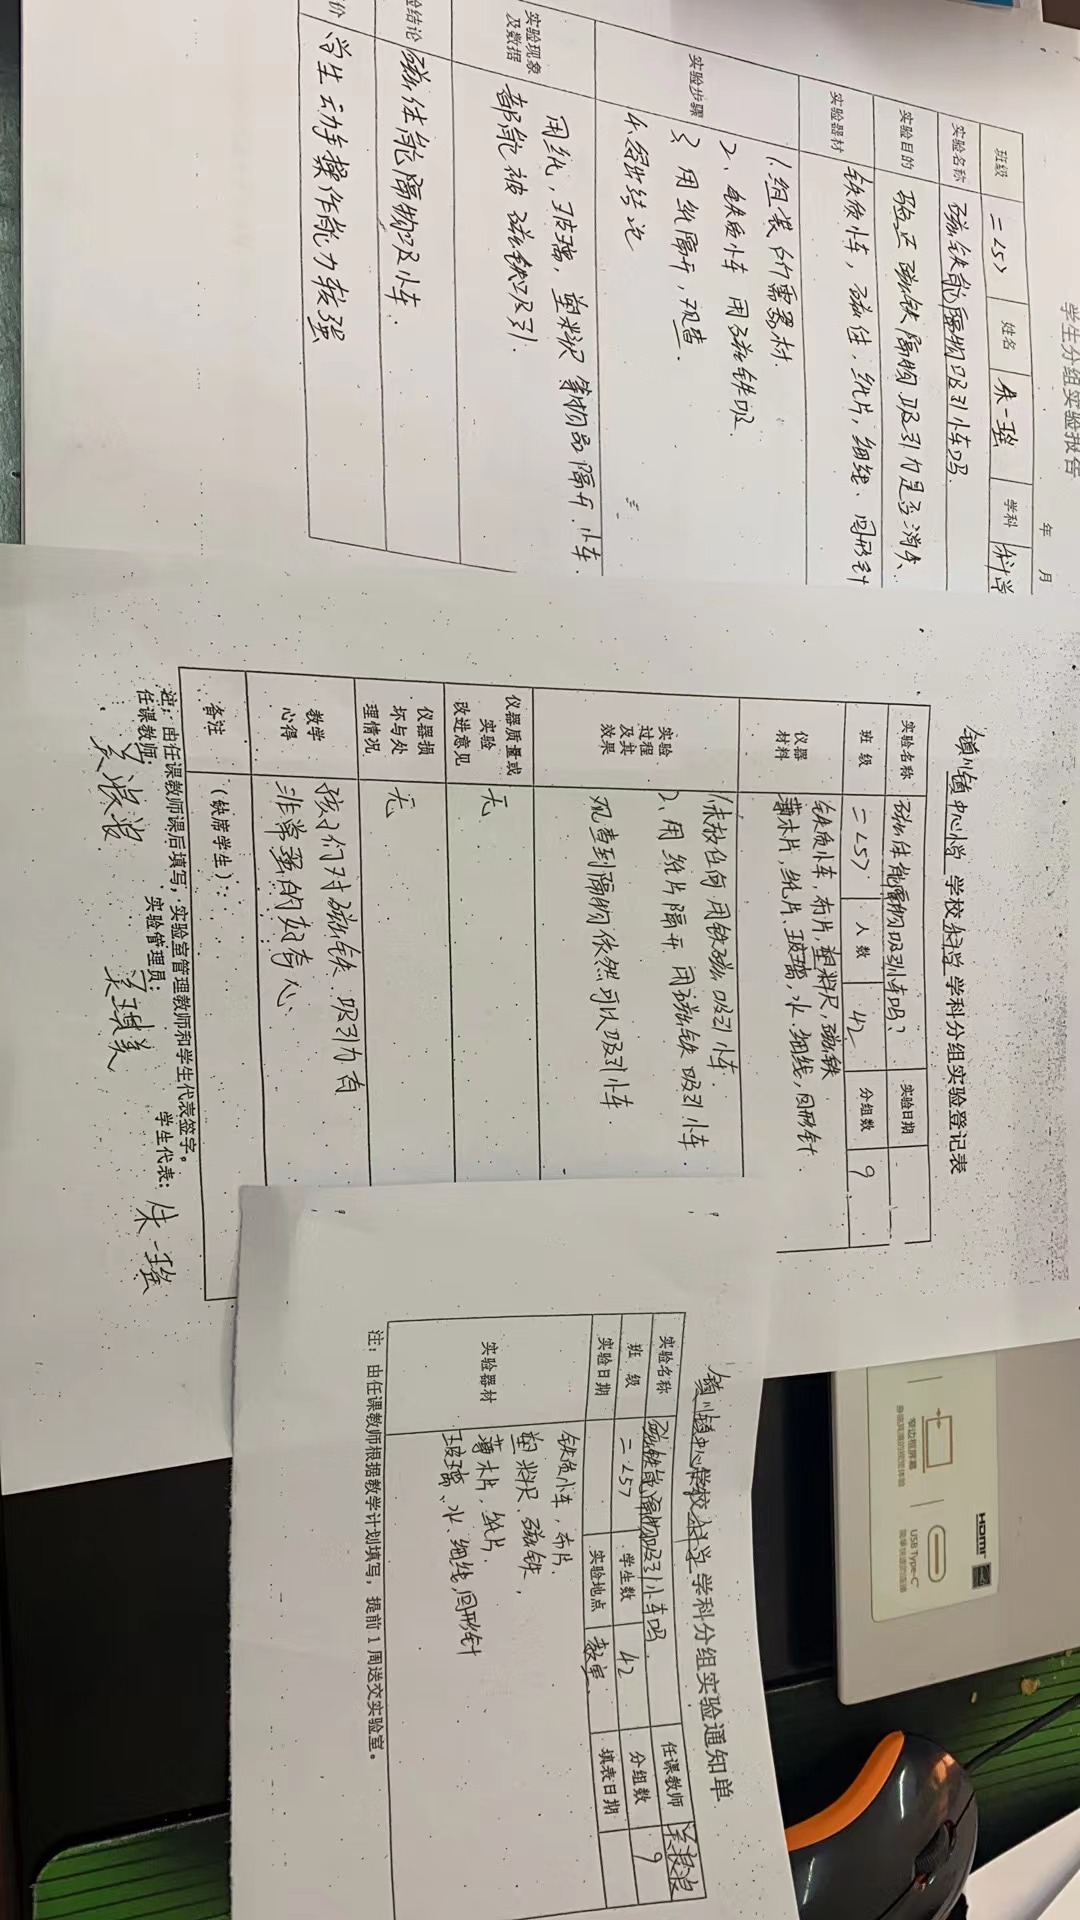 学生分组实验报告
年 月
班级 二<5> 姓名 朱一瑶 学科 科学
实验名称 磁铁能隔物吸引小车吗.
实验目的 验正磁铁隔物吸引力是否消失.
实验器材 铁质小车，磁性，纸片，细线、回形针
实验步骤
1.组装的需器材.
2、铁质小车 用磁铁吸.
3 用纸隔开，观查.
4.得出结论
实验现象及数据
用纸，玻璃，塑料尺等物品隔开.小车
都能被磁铁吸引.
验结论 磁性能隔物吸小车.
价 学生动手操作能力较强
镇川镇中心小学 学校 科学 学科分组实验登记表
实验名称 磁性能隔物吸引小车吗? 实验日期
班 级 二<5> 人 数 42 分组数 9
仪器材料
铁质小车，布片，塑料尺，磁铁
薄木片，纸片、玻璃，水.细线，回形针.
实验过程及其效果
用铁磁吸引小车.
2、用纸片隔开 用磁铁吸引小车.
观查到隔物依然可以吸引小车.
仪器质量或实验改进意见 无
仪器损坏与处理情况 无
教学心得
孩子们对磁铁吸引力有
非常强的好奇心.
备注 （缺席学生）：
注：由任课教师课后填写，实验室管理教师和学生代表签字。
任课教师： 实验管理员： 学生代表：朱一瑶
镇川镇中心小学校 科学 学科分组实验通知单
实验名称 磁铁能隔物吸引小车吗 任课教师
班 级 二<5> 学生数 42 分组数 9
实验日期 实验地点 教室 填表日期
实验器材
铁质小车，布片，
塑料尺、磁铁，
薄木片，纸片.
玻璃、水、细线，回形针
注：由任课教师根据教学计划填写，提前1周送交实验室。
窄边框屏幕
HDMI
USB Type-C